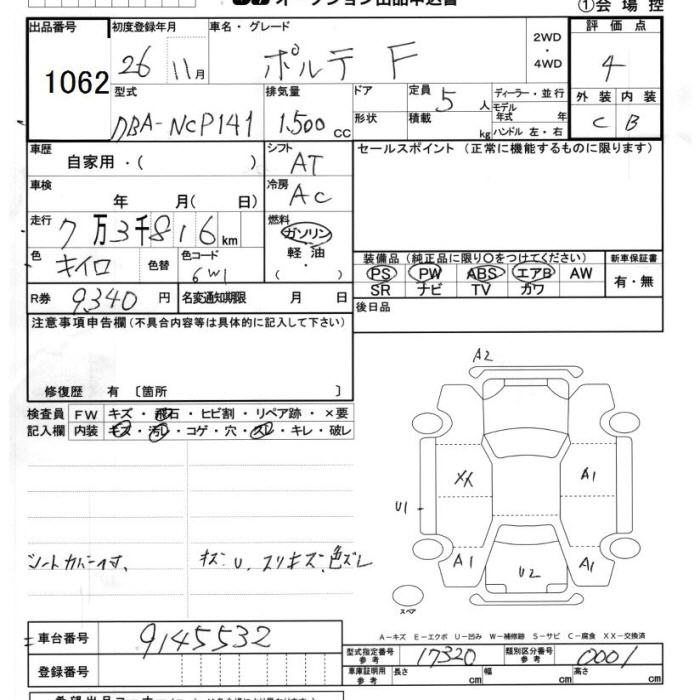 オークション出品申込書
①会場控
出品番号 初度登録年月 車名・グレード 2WD・4WD 評価点
1062 26 11月 ポルテ F 4
型式 排気量 ドア 定員 5人 ディーラー・並行 外装 内装
DBA-NCP141 1.500cc 形状 積載 kg モデル年式 年 ハンドル 左・右 C B
車歴 自家用・( ) シフト AT セールスポイント(正常に機能するものに限ります)
車検 年 月( 日) 冷房 AC
走行 7万3千816km 燃料 ガソリン 軽油・( )
色 キイロ 色替 色コード 6W1
装備品(純正品に限り〇をつけてください) 新車保証書
PS PW ABS エアB AW 有・無
SR ナビ TV カワ
R券 9340円 名変通知期限 月 日 後日品
注意事項申告欄(不具合内容等は具体的に記入して下さい)
修復歴 有 〔箇所 〕
検査員 FW キズ・飛石・ヒビ割・リペア跡・×要
記入欄 内装 キズ・汚レ・コゲ・穴・スレ・キレ・破レ
A2
XX A1
U1
A1 U2 A1
スペア
シートカバー付、 キズ、U、スリキズ、色ズレ
A-キズ E-エクボ U-凹み W-補修跡 S-サビ C-腐食 XX-交換済
車台番号 9145532
型式指定番号 参考 17320 類別区分番号 参考 0001
登録番号
車庫証明用 参考 長さ cm 幅 cm 高さ cm